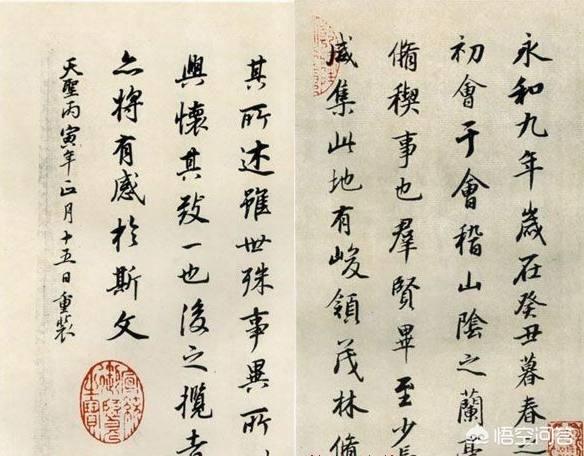 永和九年歲在癸丑暮春之
初會于會稽山陰之蘭亭
脩稧事也羣賢畢至少長
咸集此地有峻領茂林脩
其所述雖世殊事異所
興懷其致一也後之攬者
亦將有感於斯文
天聖丙寅年正月十五日重裝
悟空问答